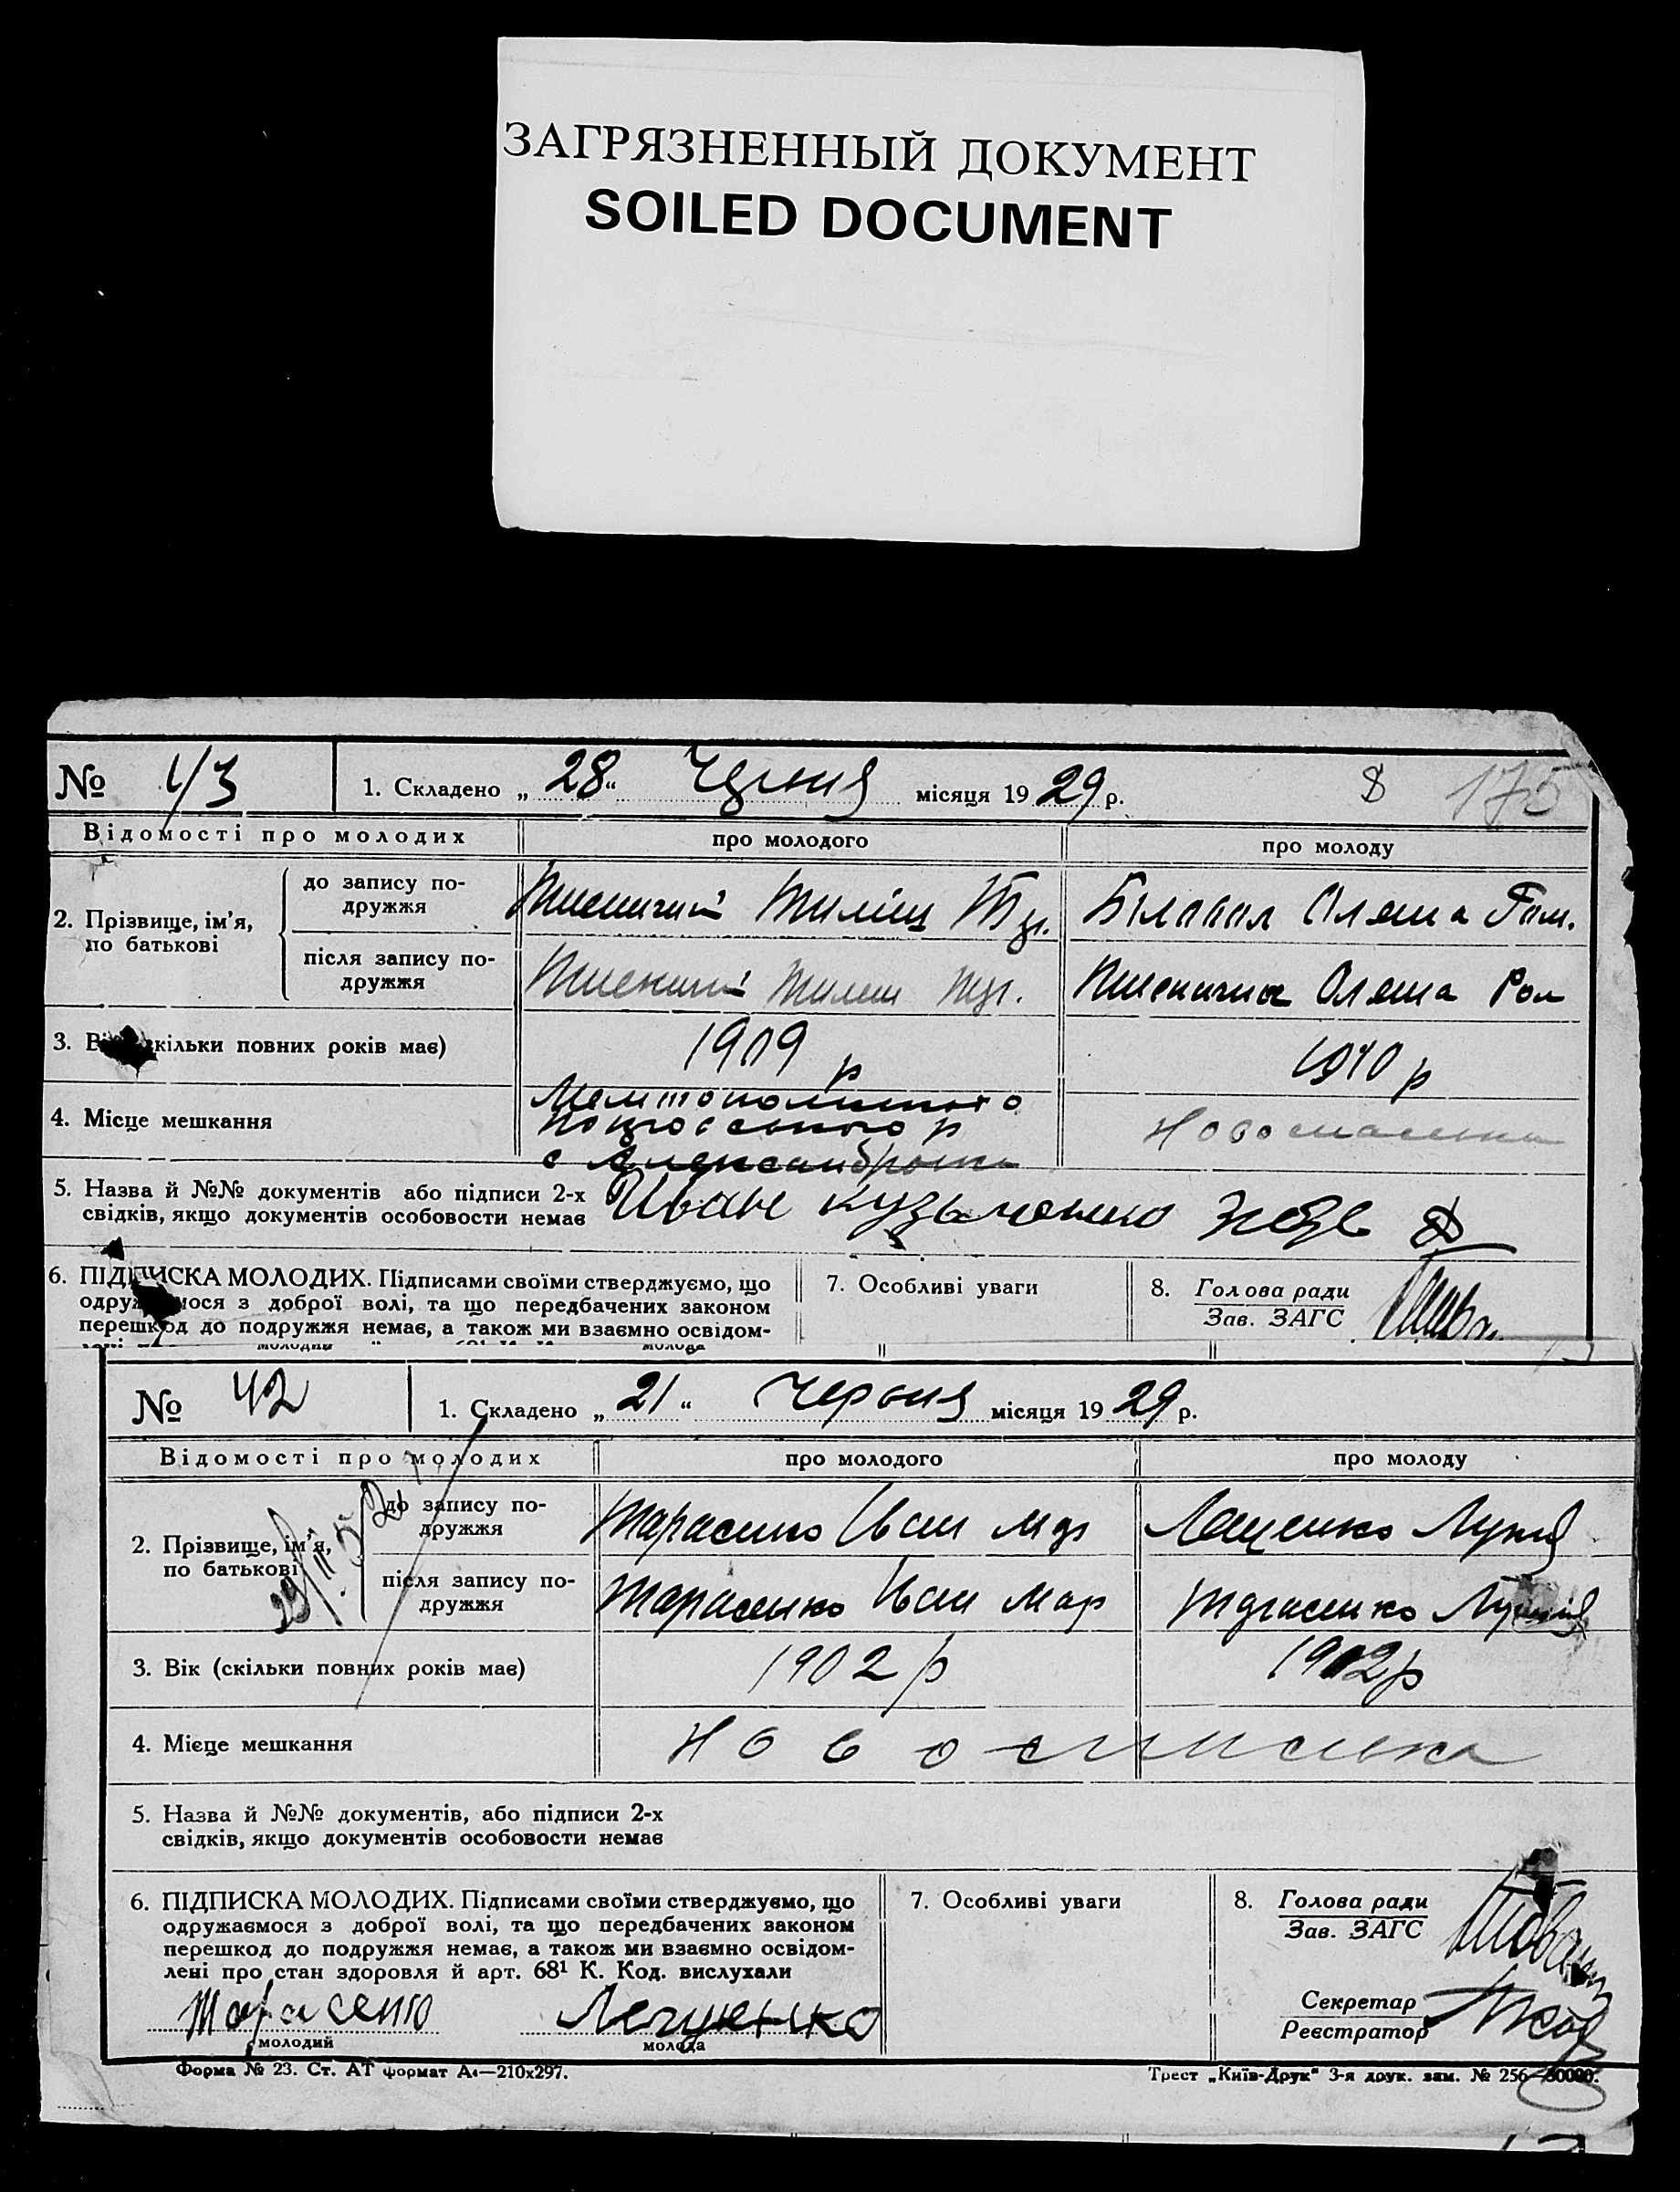 ЗАГРЯЗНЕННЫЙ ДОКУМЕНТ
SOILED DOCUMENT
№ 43
1. Складено „28“ Червня місяця 1929 р.
8 175
Відомості про молодих
про молодого
про молоду
2. Прізвище, ім’я,
по батькові
до запису по-
дружжя
Пшеничний
Білавол Оляна Ром.
після запису по-
дружжя
Пшенична Оляна Ром
3. кільки повних років має)
1909 р
1910 р
4. Місце мешкання
Мелитопольского
с Александровка
Новоспаська
5. Назва й №№ документів або підписи 2-х
свідків, якщо документів особовости немає
Иван Кузьменко
6. ПІДПИСКА МОЛОДИХ. Підписами своїми стверджуємо, що
одружуємося з доброї волі, та що передбачених законом
перешкод до подружжя немає, а також ми взаємно освідом-
7. Особливі уваги
8. Голова ради
Зав. ЗАГС
№ 42
1. Складено „21“ Червня місяця 1929 р.
Відомості про молодих
про молодого
про молоду
2. Прізвище, ім’я,
по батькові
до запису по-
дружжя
Тарасенко Иван Мар
Лещенко Лукія
після запису по-
дружжя
Тарасенко Иван Мар
Тарасенко Лукія
3. Вік (скільки повних років має)
1902 р
1902 р
4. Місце мешкання
Новоспаська
5. Назва й №№ документів, або підписи 2-х
свідків, якщо документів особовости немає
6. ПІДПИСКА МОЛОДИХ. Підписами своїми стверджуємо, що
одружаємося з доброї волі, та що передбачених законом
перешкод до подружжя немає, а також ми взаємно освідом-
лені про стан здоровля й арт. 68¹ К. Код. вислухали
Тарасенко
молодий
молода
7. Особливі уваги
8. Голова ради
Зав. ЗАГС
Секретар
Реєстратор
Форма № 23. Ст. АТ формат А4—210х297.
Трест „Київ-Друк“ 3-я друк. зам. № 256—30000.